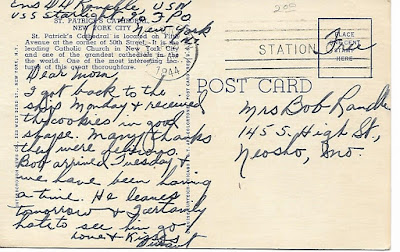 Ens D H Randle USN
USS Star F.P.O.
New York
ST. PATRICK'S CATHEDRAL,
NEW YORK CITY
St. Patrick's Cathedral is located on Fifth
Avenue at the corner of 50th Street. It is the
leading Catholic Church in New York City
and one of the grandest cathedrals in the
world. One of the most interesting
features of this great thoroughfare.
200
1944
STATION
PLACE
STAMP
HERE
Free
POST CARD
Dear Mom,
I got back to the
ship Monday & received
the cookies in good
shape. Many thanks
they were delicious.
Bob arrived Tuesday &
we have been having
a time. He leaves
tomorrow & I certainly
hate to see him go
Love & Kisses
Mrs Bob Randle
145 S. High St,
Neosho, Mo.